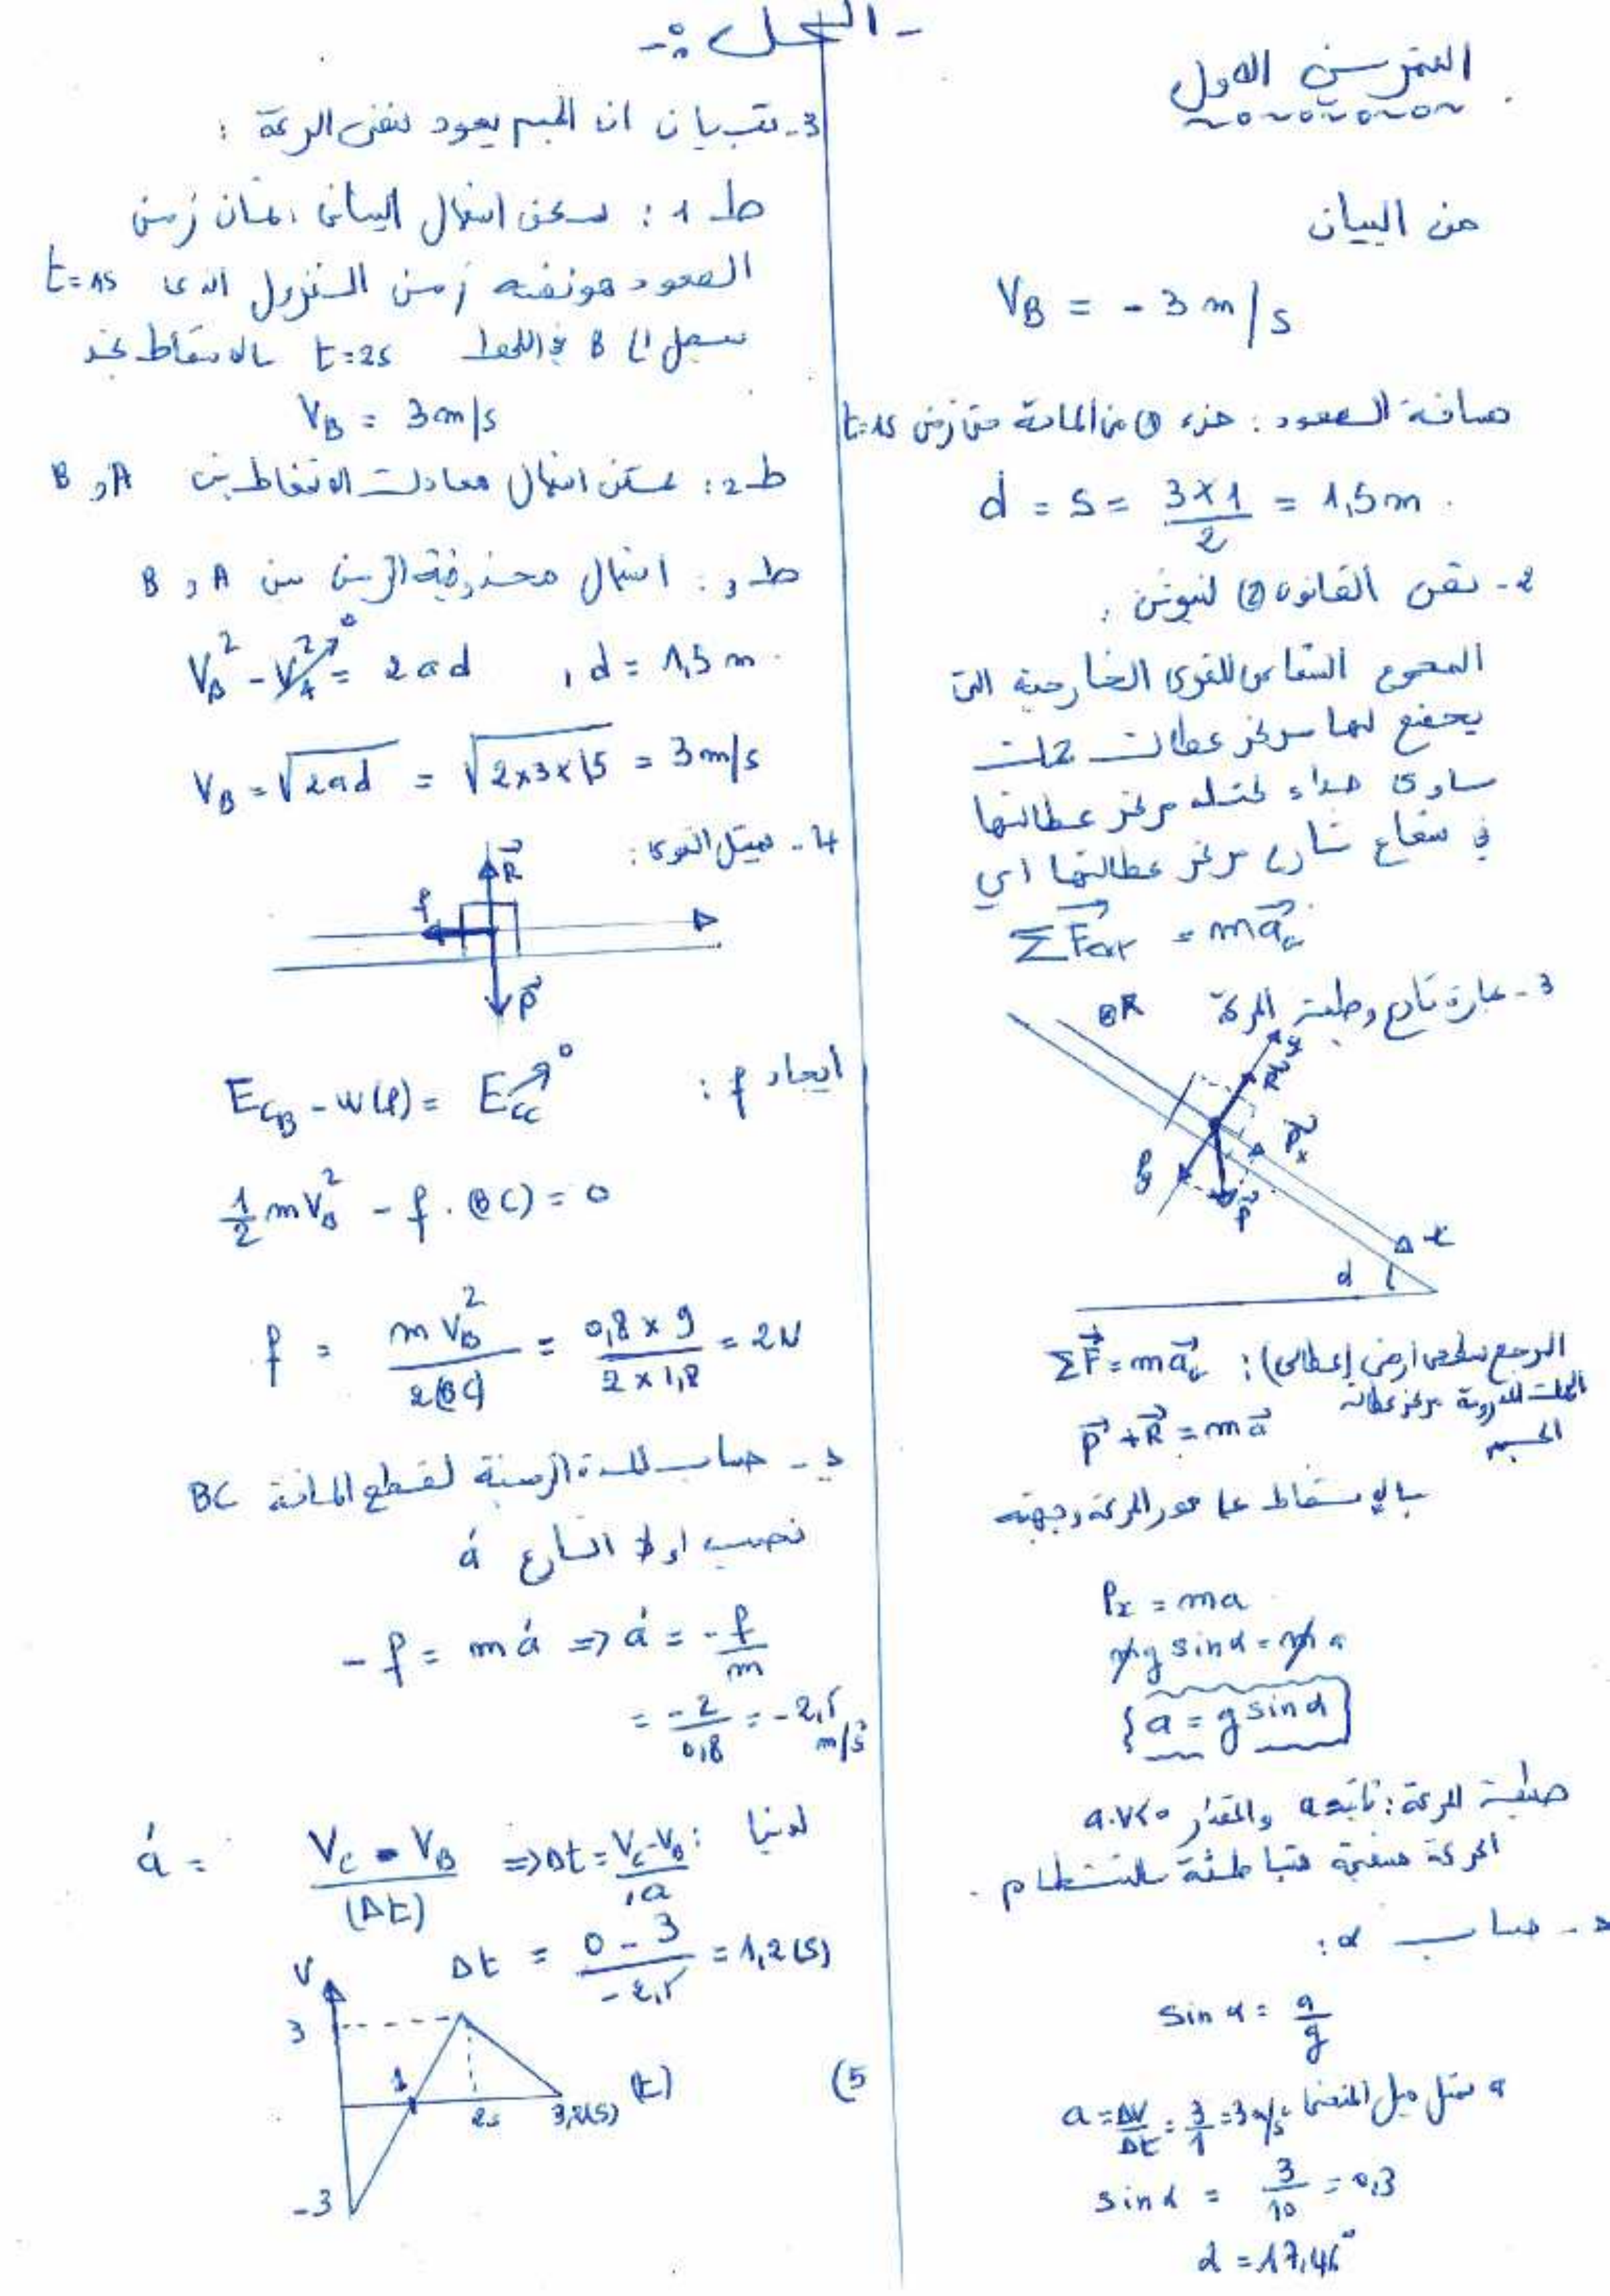 - الحل :-
التمرين الاول
من البيان
V_B = - 3 m/s
مسافة الصعود : جزء ① من المادة من زمن t=1s
d = s = \frac{3×1}{2} = 1,5m
2- نص القانون ② لنيوتن :
المجموع الشعاعي للقوى الخارجية التي
يخضع لها مركز عطالة جملة
يساوي جداء كتلة مركز عطالتها
في شعاع تسارع مركز عطالتها اي
Σ\vec{F}ext = m\vec{a}_G
3- عبارة تسارع وطبيعة الحركة
R
y
\vec{R}
\vec{P}_x
\vec{P}
x
α
المرجع سطحي ارضي (عطالي) : Σ\vec{F} = m\vec{a}_G
الجملة المدروسة مركز عطالة
الجسم
\vec{P} + \vec{R} = m\vec{a}
بالإسقاط على محور الحركة وجهته
P_x = ma
mg sinα = m a
a = g sinα
طبيعة الحركة : a ثابتة والمقدار a.v<0
الحركة مستقيمة متباطئة بانتظام .
حساب α :
sin α = \frac{a}{g}
a تمثل ميل المنحنى a = \frac{ΔV}{Δt} = \frac{3}{1} = 3 m/s²
sin α = \frac{3}{10} = 0,3
α = 17,46°
3- تبيان ان الجسم يعود بنفس السرعة :
ط 1 : يمكن استعمال البيان ، بمان زمن
الصعود هو نفسه زمن النزول الذي t=1s
يصل الى B في اللحظة t=2s بالاسقاط نجد
V_B = 3m/s
ط 2 : يمكن استعمال معادلة الانحفاظ بين A و B
ط 3 : استعمال محذوفية الزمن بين A و B
V_B² - V_A²↗0 = 2 a d , d = 1,5 m
V_B = √(2ad) = √(2×3×1,5) = 3m/s
4- تمثيل القوى :
\vec{R}
f
\vec{P}
ايجاد f :
E_{CB} - W(f) = E_{CC}↗0
\frac{1}{2} m V_B² - f . (BC) = 0
f = \frac{m V_B²}{2(BC)} = \frac{0,8 × 9}{2 × 1,8} = 2N
حساب المدة الزمنية لقطع المسافة BC
نحسب اولا التسارع á
- f = m á ⇒ á = -\frac{f}{m}
= \frac{-2}{0,8} = -2,5 m/s²
لدينا : á = \frac{V_C - V_B}{(Δt)} ⇒ Δt = \frac{V_C - V_B}{á}
Δt = \frac{0 - 3}{-2,5} = 1,2 (s)
5)
V
3
1
2s
3,2(s)
(t)
-3